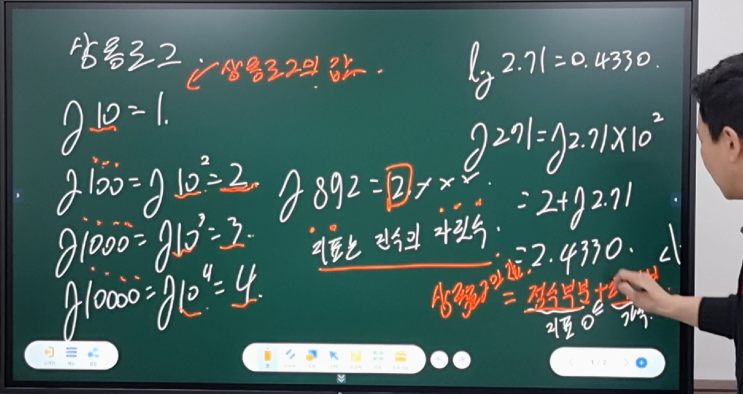 상용로그.
상용로그의 값.
log 10 = 1.
log 100 = log 10² = 2.
log 1000 = log 10³ = 3.
log 10000 = log 10⁴ = 4.
log 892 = 2.×××.
지표는 진수의 자릿수.
log 2.71 = 0.4330.
log 271 = log 2.71×10²
= 2 + log 2.71
= 2.4330.
상용로그의 값 = 정수부분 +
지표 0≤ 가수
1 / 2